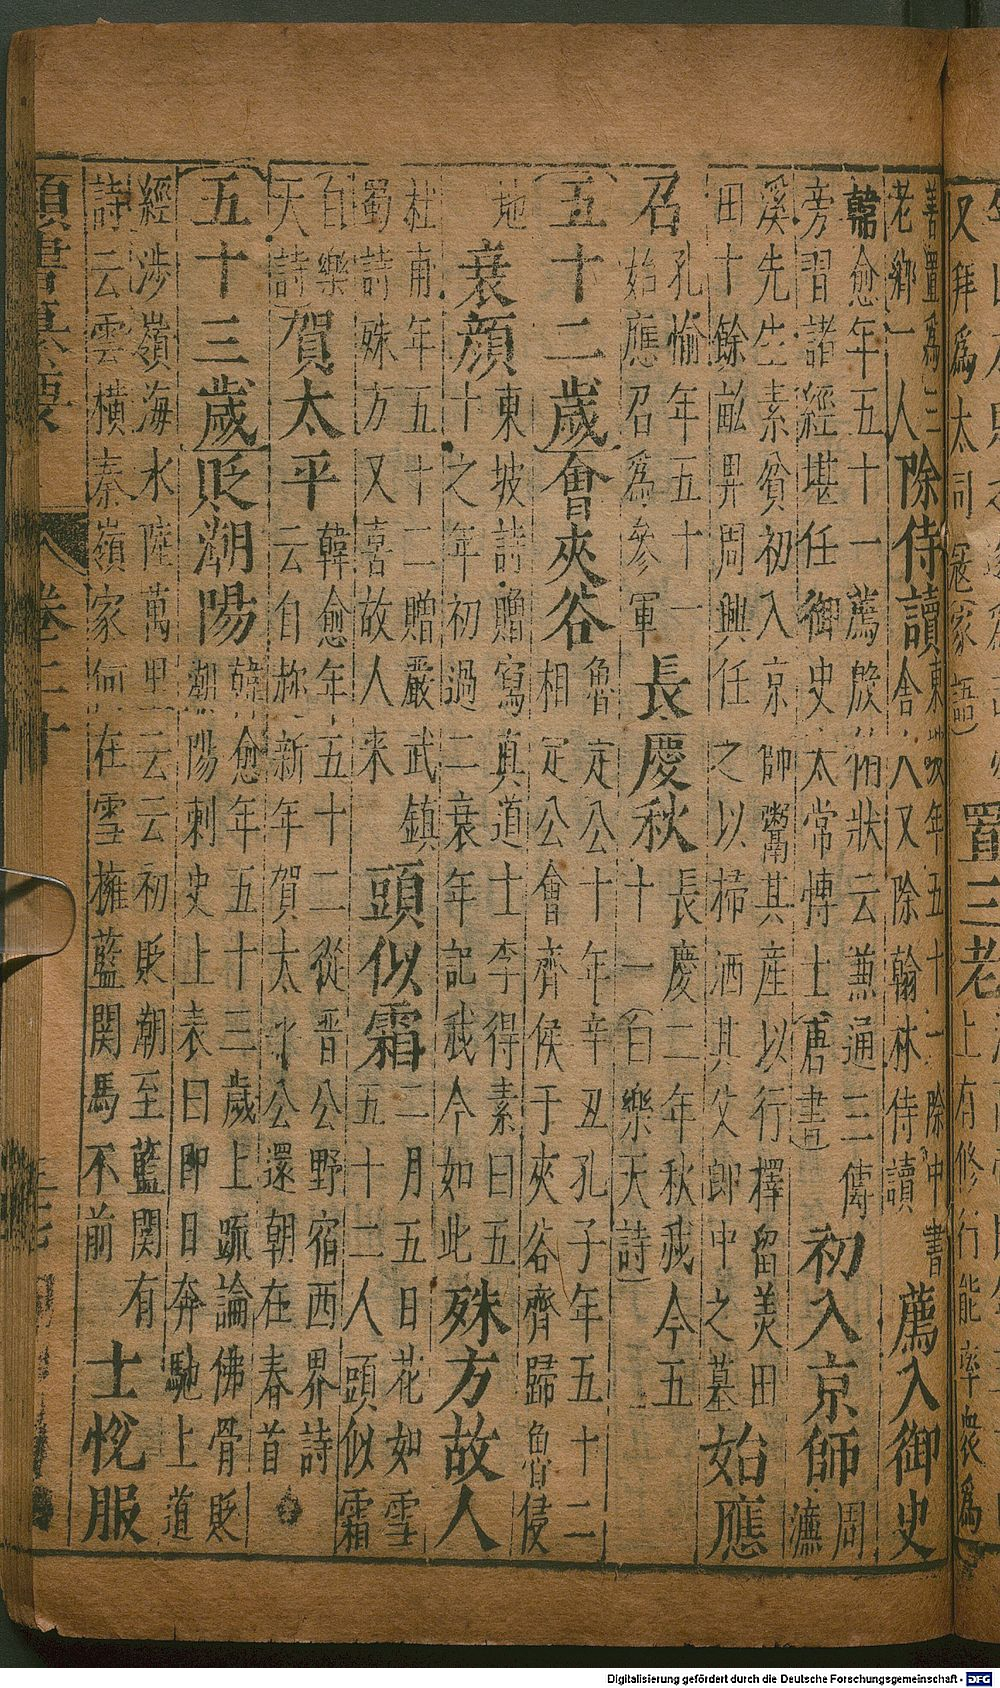 又拜爲太司寇家語 置三老
上有修行能率衆爲
善置爲三
老鄉一人
除侍讀
東坡年五十一除中書
舍人又除翰林侍讀
薦入御史
韓愈年五十一薦殷侑狀云兼通三傳
旁習諸經堪任御史太常博士(唐書)
初入京師
周
濂
溪先生素貧初入京師鬻其産以行擇留美田
田十餘畝畀周興任之以掃洒其父郎中之墓
始應
召
孔愉年五十一
始應召爲參軍
長慶秋
長慶二年秋我今五
十一(白樂天詩)
五十二歲
會夾谷
魯定公十年辛丑孔子年五十二
相定公會齊侯于夾谷齊歸魯侵
地
衰顔
東坡詩贈寫真道士李得素曰五
十之年初過二衰年記我今如此
殊方故人
杜甫年五十二贈嚴武鎮
蜀詩殊方又喜故人来
頭似霜
二月五日花如雪
五十二人頭似霜
白樂
天詩
賀太平
韓愈年五十二從晋公野宿西界詩
云自称新年賀太平公還朝在春首
五十三歲
貶潮陽
韓愈年五十三歲上疏論佛骨貶
潮陽刺史上表曰即日奔馳上道
經涉嶺海水陸萬里云云初貶潮至藍関有
詩云雲横秦嶺家何在雪擁藍関馬不前
士悅服
類書纂要
卷二十
Digitalisierung gefördert durch die Deutsche Forschungsgemeinschaft - DFG